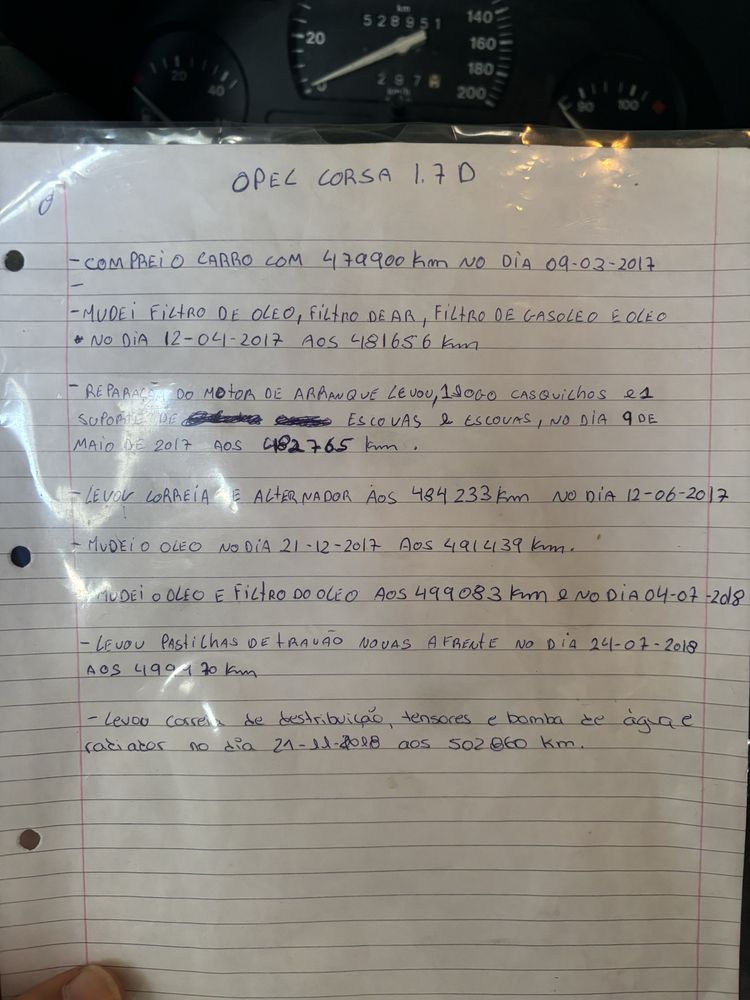 km
528951
20
140
160
180
200
297
km/h
20
40
90
100
OPEL CORSA 1.7 D
- COMPREI O CARRO COM 479900 Km NO DIA 09-03-2017
-
- MUDEI FILTRO DE OLEO, FILTRO DE AR, FILTRO DE GASOLEO E OLEO
• NO DIA 12-04-2017 AOS 481656 Km
- REPARAÇÃO DO MOTOR DE ARRANQUE LEVOU, 1 JOGO CASQUILHOS e 1
SUPORTE DE ESCOVAS e ESCOVAS, NO DIA 9 DE
MAIO DE 2017 AOS 482765 Km.
- LEVOU CORREIA DE ALTERNADOR AOS 484233 Km NO DIA 12-06-2017
- MUDEI O OLEO NO DIA 21-12-2017 AOS 491439 Km.
MUDEI O OLEO E FILTRO DO OLEO AOS 499083 Km e NO DIA 04-07-2018
- LEVOU PASTILHAS DE TRAVÃO NOVAS A FRENTE NO DIA 24-07-2018
AOS Km
- Levou correia de destribuição, tensores e bomba de água e
radiador no dia 21-11-2018 aos 502860 Km.